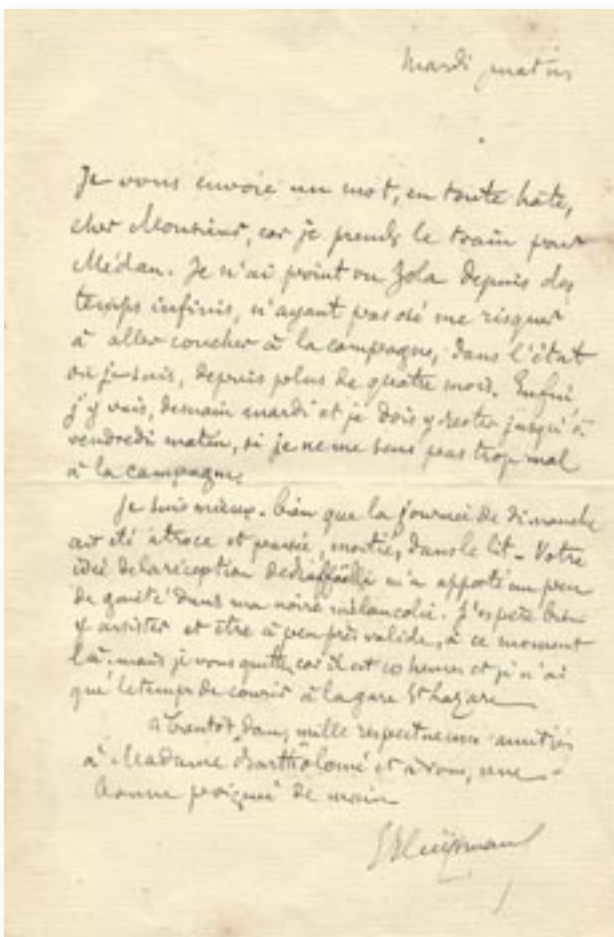 Mardi matin
Je vous envoie un mot, en toute hâte,
cher Monsieur, car je prends le train pour
Médan. Je n'ai point vu Zola depuis des
temps infinis, n'ayant pas osé me risquer
à aller coucher à la campagne, dans l'état
où je suis, depuis plus de quatre mois. Enfin
j'y vais, demain mardi et je dois y rester jusqu'à
vendredi matin, si je ne me sens pas trop mal
à la campagne.
Je suis mieux. bien que la journée de dimanche
ait été atroce et passée, moitié, dans le lit. Votre
idée de la réception de Raffaëlli m'a apporté un peu
de gaité dans ma noire mélancolie. J'espère bien
y assister et être à peu près valide, à ce moment
là. mais je vous quitte, car il est 10 heures et je n'ai
que le temps de courir à la gare St Lazare
à bientôt donc, mille respectueuses amitiés
à Madame Bartholomé et à vous, une
bonne poignée de main
Huysmans